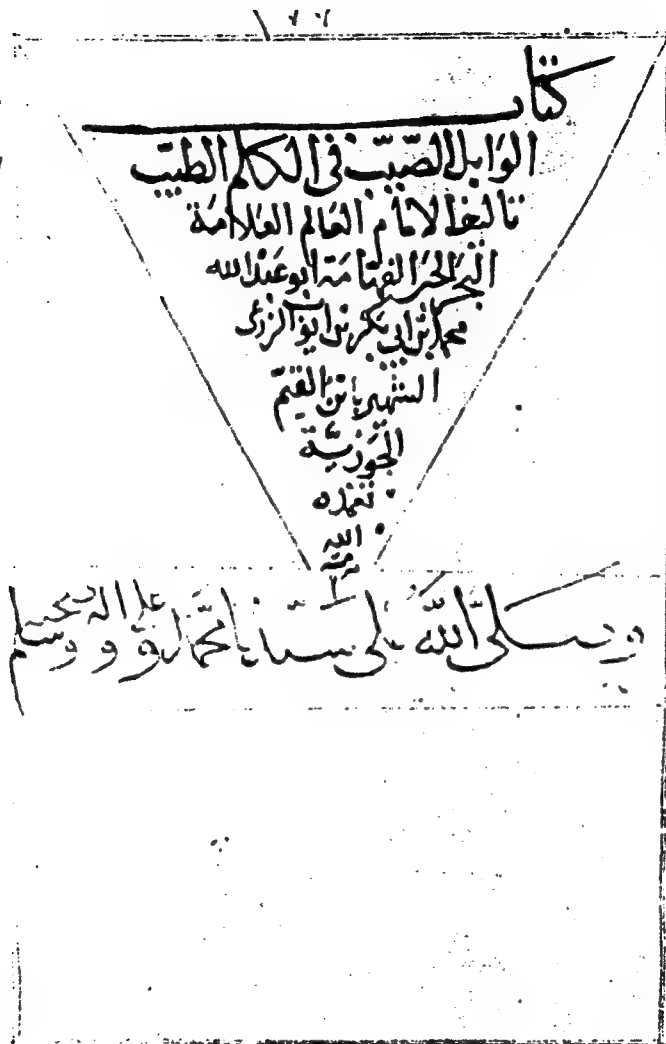 كتاب
الوابل الصيّب في الكلم الطيّب
تاليف الامام العالم العلامة
البحر الحبر الفهامة ابو عبد الله
محمد ابن ابي بكر بن ايوب الزرعي
الشهير بابن القيم
الجوزية
تغمده
الله
وصلى الله على سيدنا محمد وعلى اله وصحبه وسلم